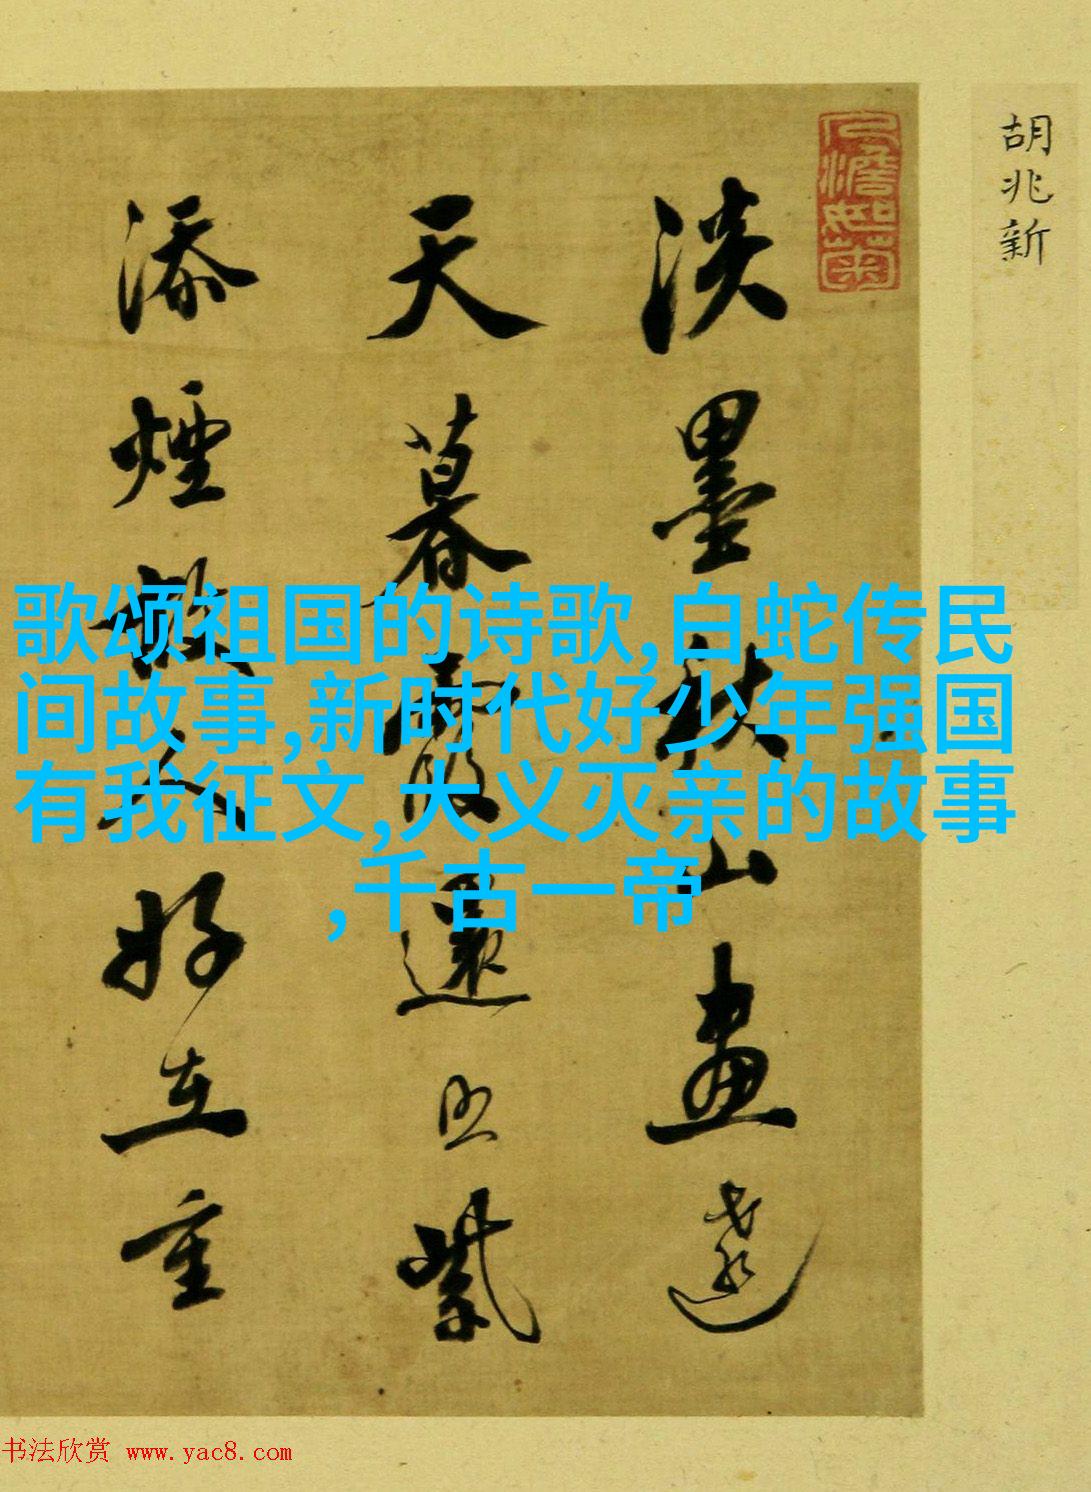 胡兆新
淡墨秋山畫遠
天暮霞還照紫
添煙故人好在重
歌颂祖国的诗歌,白蛇传民
间故事,新时代好少年强国
有我征文,大义灭亲的故事
,千古一帝
书法欣赏 www.yac8.com